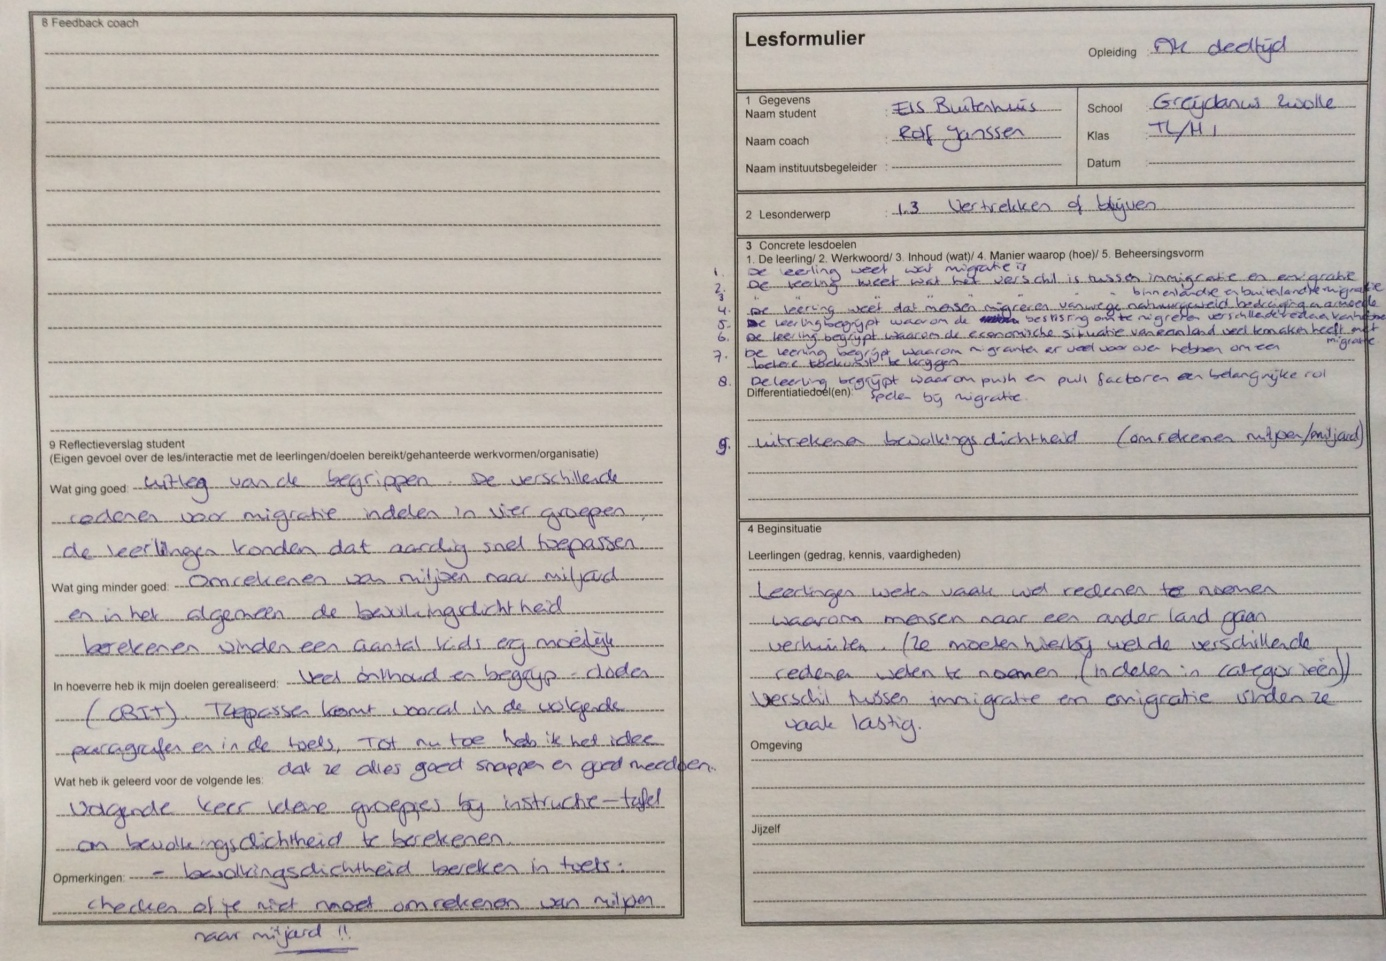 8 Feedback coach
9 Reflectieverslag student
(Eigen gevoel over de les/interactie met de leerlingen/doelen bereikt/gehanteerde werkvormen/organisatie)
Wat ging goed: uitleg van de begrippen. De verschillende
redenen voor migratie indelen in vier groepen,
de leerlingen konden dat aardig snel toepassen
Wat ging minder goed: Omrekenen van miljoen naar miljard
en in het algemeen de bevolkingsdichtheid
berekenen vinden een aantal kids erg moeilijk
In hoeverre heb ik mijn doelen gerealiseerd: Veel onthoud en begrijp-doelen
(OBIT). Toepassen komt vooral in de volgende
paragrafen en in de toets. Tot nu toe heb ik het idee
dat ze alles goed snappen en goed meedoen.
Wat heb ik geleerd voor de volgende les:
Volgende keer kleine groepjes bij instructie-tafel
om bevolkingsdichtheid te berekenen.
Opmerkingen: - bevolkingsdichtheid bereken in toets:
checken of je niet moet omrekenen van miljoen
naar miljard !!
Lesformulier
Opleiding : AK deeltijd
1 Gegevens
Naam student : Els Buitenhuis
Naam coach : Rolf Janssen
Naam instituutsbegeleider :
School : Greijdanus Zwolle
Klas : TL/H1
Datum :
2 Lesonderwerp : 1.3 Vertrekken of blijven
3 Concrete lesdoelen
1. De leerling/ 2. Werkwoord/ 3. Inhoud (wat)/ 4. Manier waarop (hoe)/ 5. Beheersingsvorm
1. De leerling weet wat migratie is
2. De leerling weet wat het verschil is tussen immigratie en emigratie
3 " " " " " " binnenlandse en buitenlandse migratie
4. De leerling weet dat mensen migreren vanwege natuurgeweld bedreiging armoede
5. De leerling begrijpt waarom de beslissing om te migreren verschillende redenen kan hebben
6. De leerling begrijpt waarom de economische situatie van een land veel te maken heeft met migratie
7. De leerling begrijpt waarom migranten er veel voor over hebben om een
betere toekomst te krijgen
8. De leerling begrijpt waarom push en pull factoren een belangrijke rol
spelen bij migratie.
Differentiatiedoel(en):
9. uitrekenen bevolkingsdichtheid (omrekenen miljoen/miljard)
4 Beginsituatie
Leerlingen (gedrag, kennis, vaardigheden)
Leerlingen weten vaak wel redenen te noemen
waarom mensen naar een ander land gaan
verhuizen. (Ze moeten hierbij wel de verschillende
redenen weten te noemen (indelen in categorieën))
Verschil tussen immigratie en emigratie vinden ze
vaak lastig.
Omgeving
Jijzelf